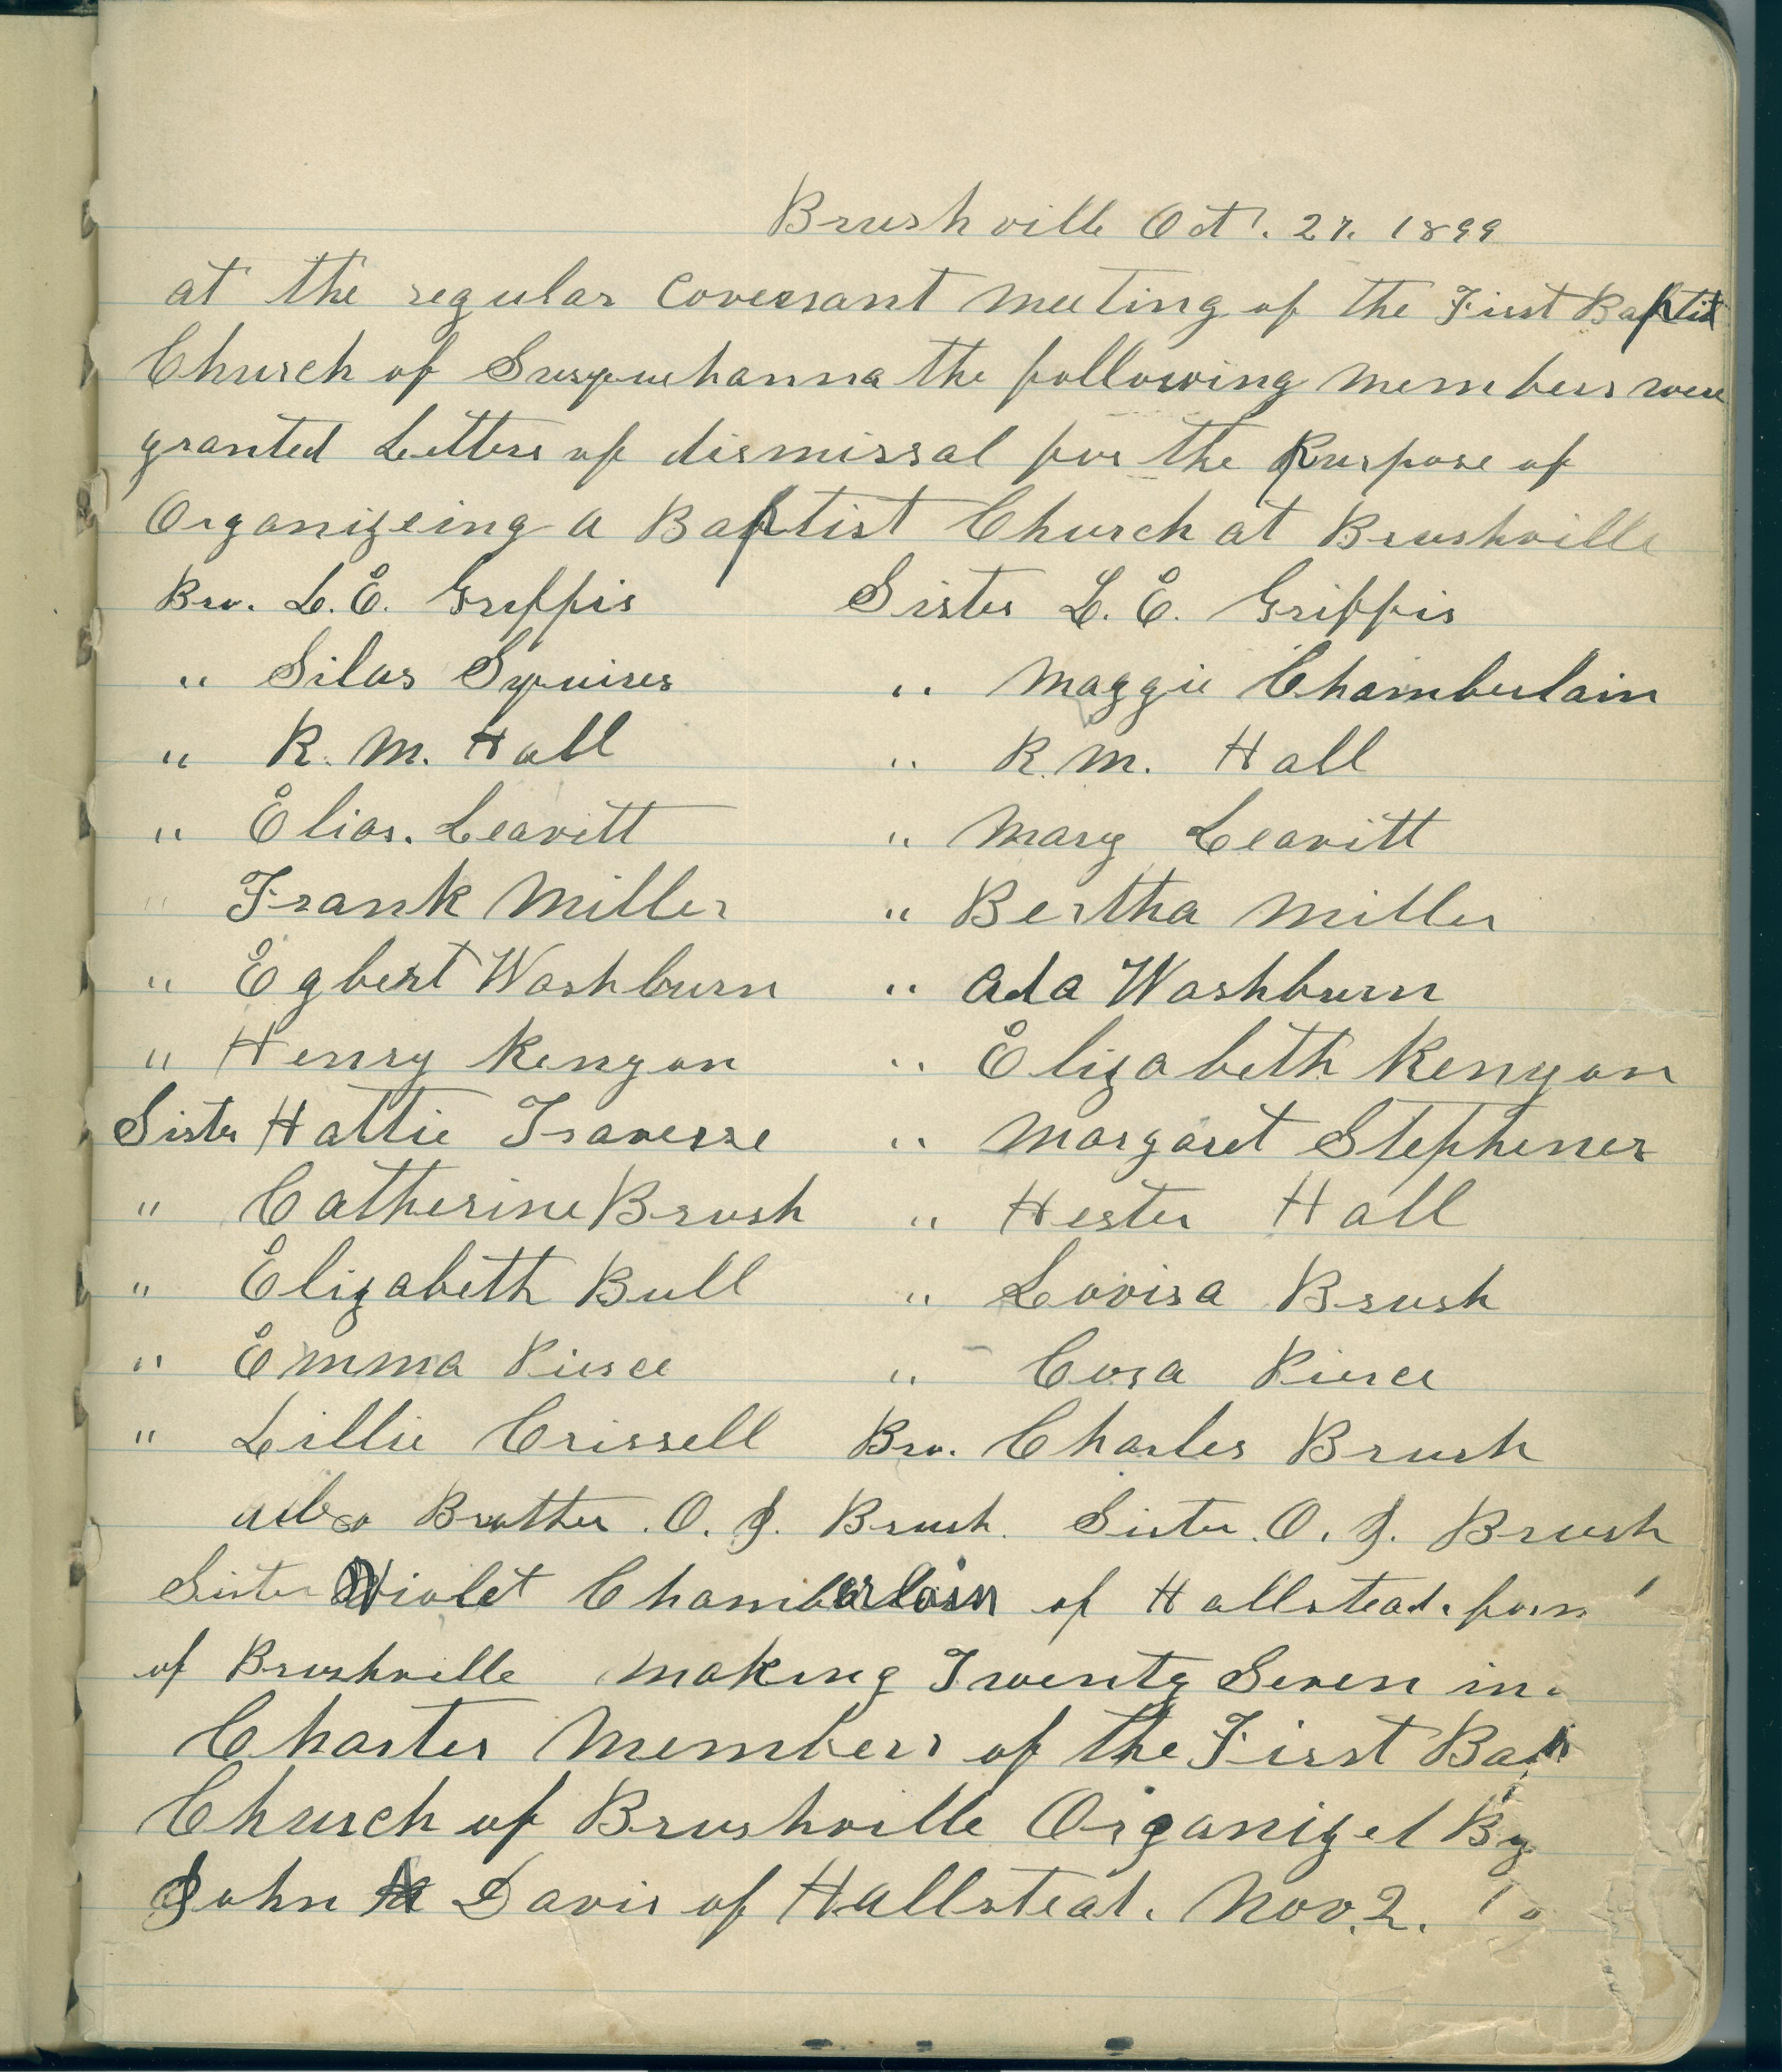 Brushville Oct. 27. 1899
at the regular Covenant meeting of the First Baptist
Church of Susquehanna the following members were
granted Letters of dismissal for the Purpose of
Organizeing a Baptist Church at Brushville
Bro. L. E. Griffis Sister L. E. Griffis
" Silas Squires " Maggie Chamberlain
" R. M. Hall " R. M. Hall
" Elias. Leavitt " Mary Leavitt
" Frank Miller " Bertha Miller
" Egbert Washburn " Ada Washburn
" Henry Kenyon " Elizabeth Kenyon
Sister Hattie Traverse " Margaret Stephener
" Catherine Brush " Hester Hall
" Elizabeth Bull " Lovisa Brush
" Emma Pierce " Cora Pierce
" Lillie Crissell Bro. Charles Brush
also Brother. O. J. Brush. Sister. O. J. Brush
Sister Violet Chamberlain of Hallstead. form
of Brushville making Twenty Seven in
Charter Members of the First Bap
Church of Brushville Organized By
John Davis of Hallstead. Nov. 2.